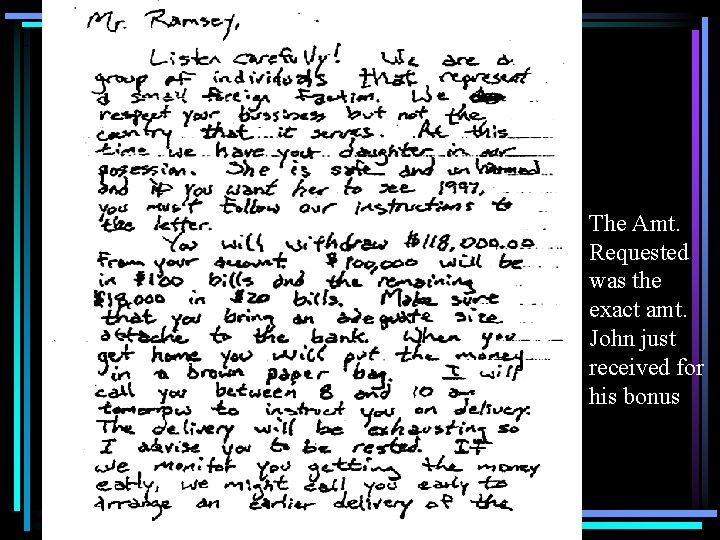 Mr. Ramsey,
Listen carefully! We are a
group of individuals that represent
a small foreign faction. We
respect your bussiness but not the
country that it serves. At this
time we have your daughter in our
posession. She is safe and unharmed
and if you want her to see 1997,
you must follow our instructions to
the letter.
You will withdraw $118,000.00
from your account. $100,000 will be
in $100 bills and the remaining
$18,000 in $20 bills. Make sure
that you bring an adequate size
attache to the bank. When you
get home you will put the money
in a brown paper bag. I will
call you between 8 and 10 am
tomorrow to instruct you on delivery.
The delivery will be exhausting so
I advise you to be rested. If
we monitor you getting the money
early, we might call you early to
arrange an earlier delivery of the
The Amt.
Requested
was the
exact amt.
John just
received for
his bonus